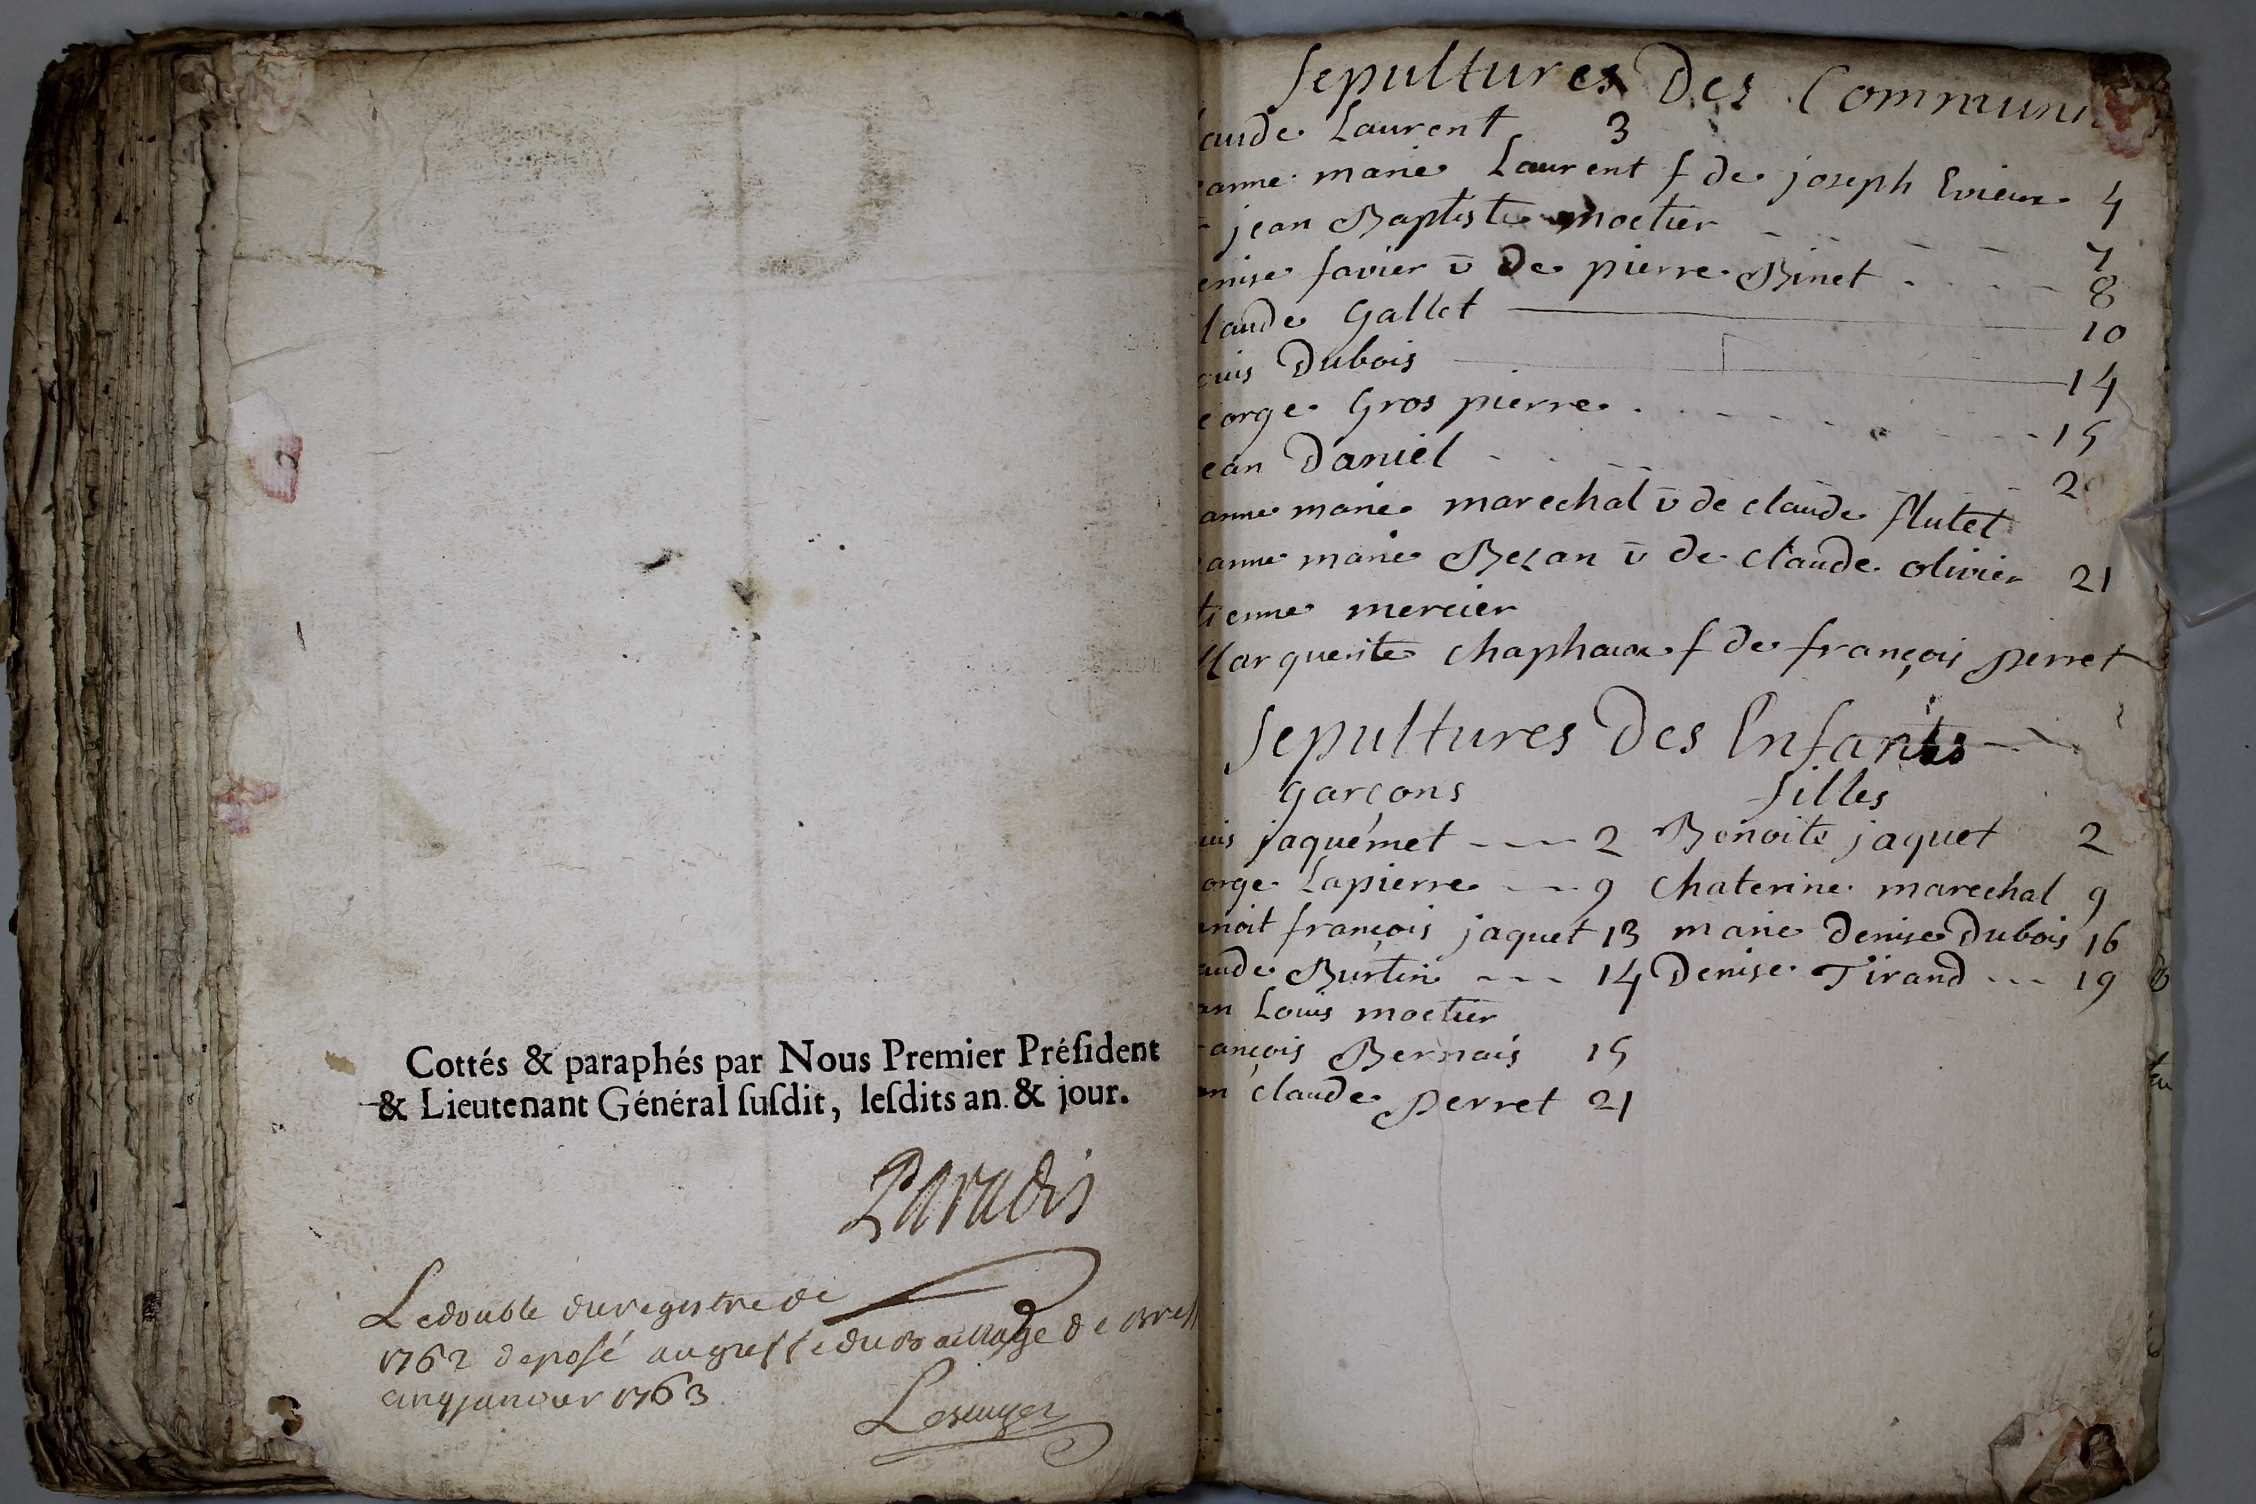 Cottés & paraphés par Nous Premier Préſident
& Lieutenant Général ſuſdit, leſdits an & jour.
Paradis
Le double du registre de
1762 deposé au greffe du Bailliage de Bres
cinq janvier 1763
Sepultures Des Communi
aude Laurent 3
anne marie Laurent f de joseph Evieux 4
jean Baptiste moctier 7
enise favier v̄ de pierre Binet 8
laude Gallet 10
ouis Dubois 14
eorge Gros pierre 15
ean Daniel 20
anne marie marechal v̄ de claude flutet
anne marie Bezan v̄ de claude olivier 21
tienne mercier
Marguerite chaphaux f de françois perret
Sepultures Des Enfants
Garçons filles
uis jaquemet --- 2 Benoite jaquet 2
orge Lapierre --- 9 Chaterine marechal 9
noit françois jaquet 13 marie Denise Dubois 16
aude Burtin --- 14 Denise Tirand --- 19
an Louis moctier
ançois Bernais 15
an claude perret 21